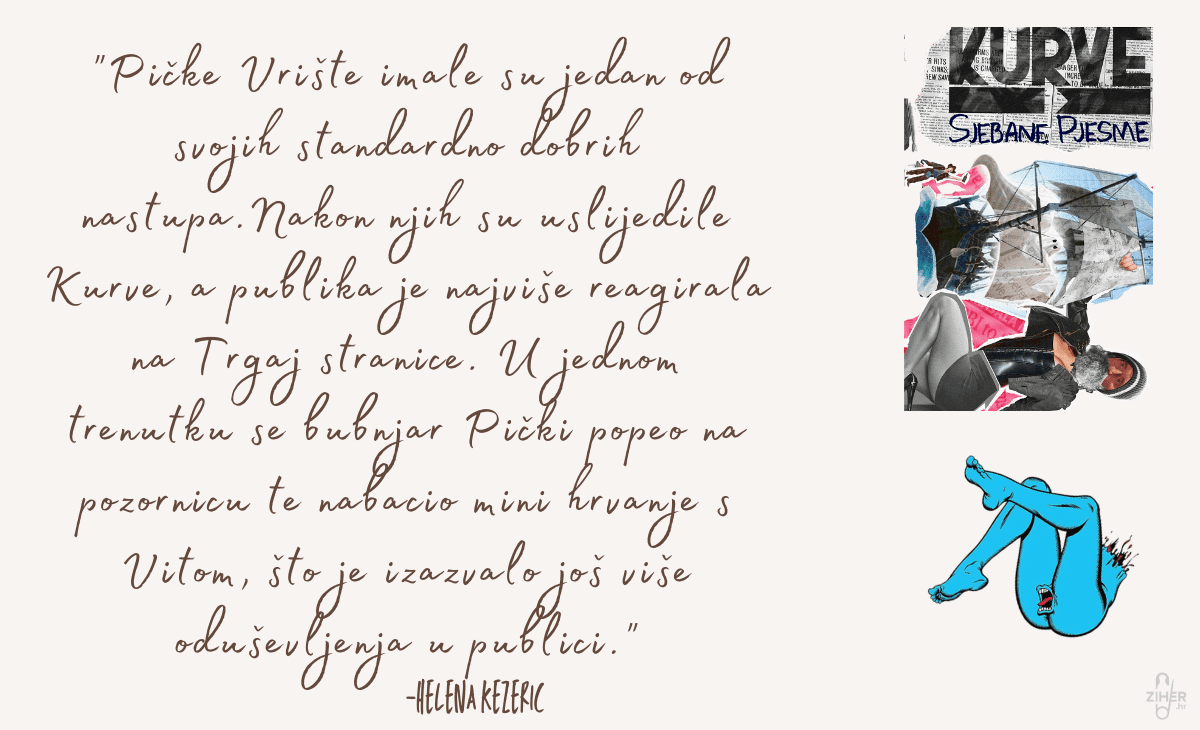 "Pičke Vrište imale su jedan od
svojih standardno dobrih
nastupa. Nakon njih su uslijedile
Kurve, a publika je najviše reagirala
na Trgaj stranice. U jednom
trenutku se bubnjar Pički popeo na
pozornicu te nabacio mini hrvanje s
Vitom, što je izazvalo još više
oduševljenja u publici."
-HELENA KEZERIC
KURVE
SJEBANE PJESME
ZIHER
.hr